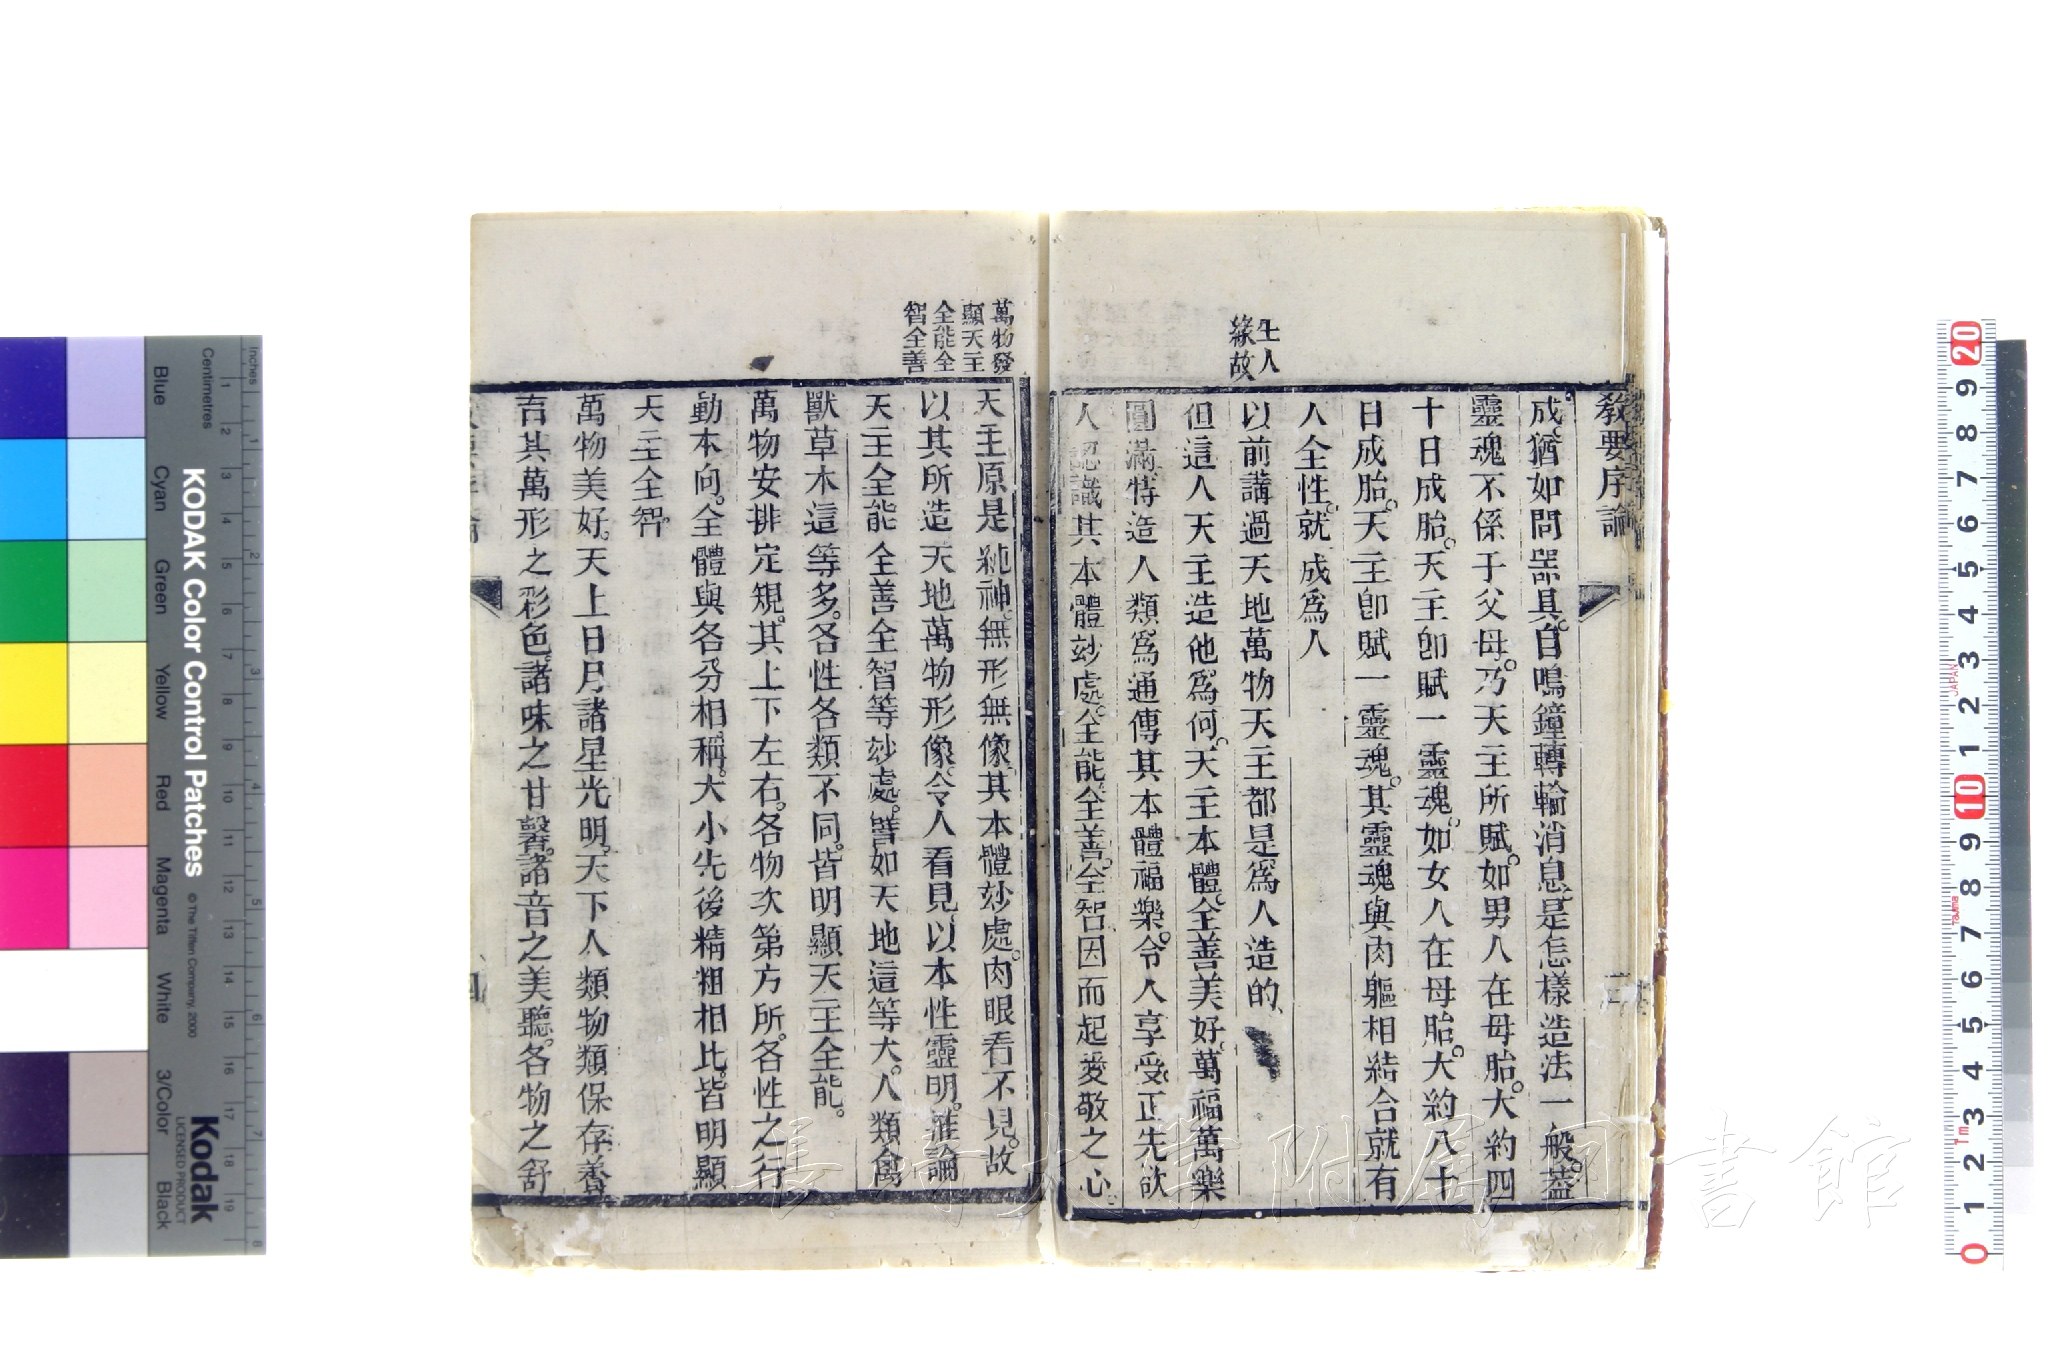 教要序論
生人
緣故
成。猶如問噐具。自鳴鐘轉輪消息。是怎樣造法一般。葢
靈魂不係于父母。乃天主所賦。如男人在母胎。大約四
十日成胎。天主卽賦一靈魂。如女人在母胎。大約八十
日成胎。天主卽賦一靈魂。其靈魂與肉軀相結合就有
人全性。就成爲人
以前講過天地萬物天主都是爲人造的
但這人天主造他爲何。天主本體。全善美好。萬福萬樂
圓滿。特造人類爲通傳其本體福樂。令人享受。正先欲
人認識其本體玅處。全能全善。全智因而起愛敬之心。
萬物發
顯天主
全能全
智全善
天主原是純神。無形無像。其本體玅處。肉眼看不見。故
以其所造天地萬物形像。令人看見以本性靈明。推論
天主全能全善全智等玅處。譬如天地這等大。人類禽
獸草木這等多。各性各類不同。皆明顯天主全能。
萬物安排定規。其上下左右。各物次第方所。各性之行
動本向。全體與各分相稱。大小先後精粗相比。皆明顯
天主全智
萬物美好。天上日月諸星光明。天下人類物類保存養
育其萬形之彩色。諸味之甘馨。諸音之美聽。各物之舒
四
KODAK Color Control Patches
© The Tiffen Company, 2000
Kodak
LICENSED PRODUCT
Inches
Centimetres
Blue
Cyan
Green
Yellow
Red
Magenta
White
3/Color
Black
長崎大学附属図書館
JAPAN
Tajima
1m